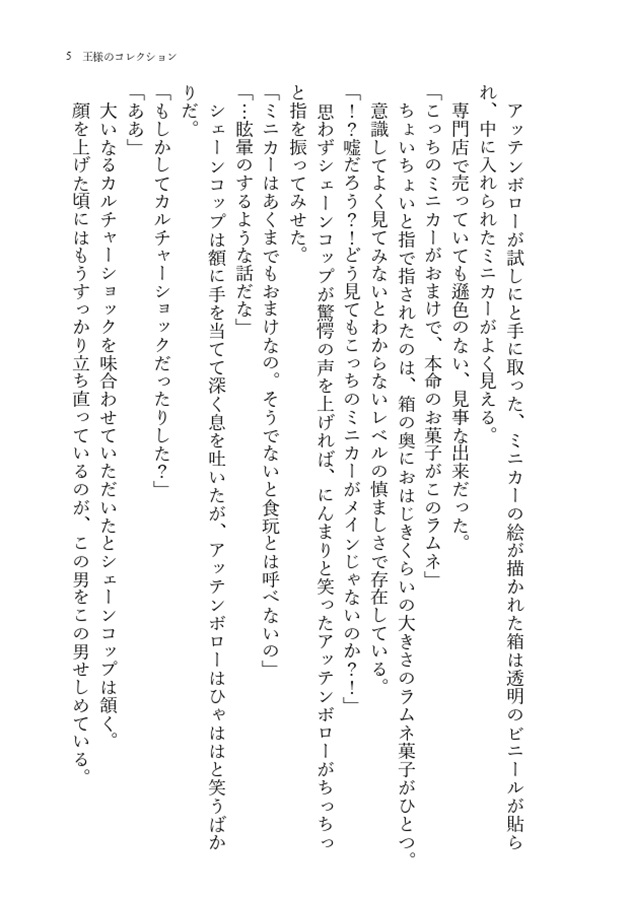 5 王様のコレクション
アッテンボローが試しにと手に取った、ミニカーの絵が描かれた箱は透明のビニールが貼ら
れ、中に入れられたミニカーがよく見える。
専門店で売っていても遜色のない、見事な出来だった。
「こっちのミニカーがおまけで、本命のお菓子がこのラムネ」
ちょいちょいと指で指されたのは、箱の奥におはじきくらいの大きさのラムネ菓子がひとつ。
意識してよく見てみないとわからないレベルの慎ましさで存在している。
「！？嘘だろう？！どう見てもこっちのミニカーがメインじゃないのか？！」
思わずシェーンコップが驚愕の声を上げれば、にんまりと笑ったアッテンボローがちっちっ
と指を振ってみせた。
「ミニカーはあくまでもおまけなの。そうでないと食玩とは呼べないの」
「…眩暈のするような話だな」
シェーンコップは額に手を当てて深く息を吐いたが、アッテンボローはひゃははと笑うばか
りだ。
「もしかしてカルチャーショックだったりした？」
「ああ」
大いなるカルチャーショックを味合わせていただいたとシェーンコップは頷く。
顔を上げた頃にはもうすっかり立ち直っているのが、この男をこの男せしめている。